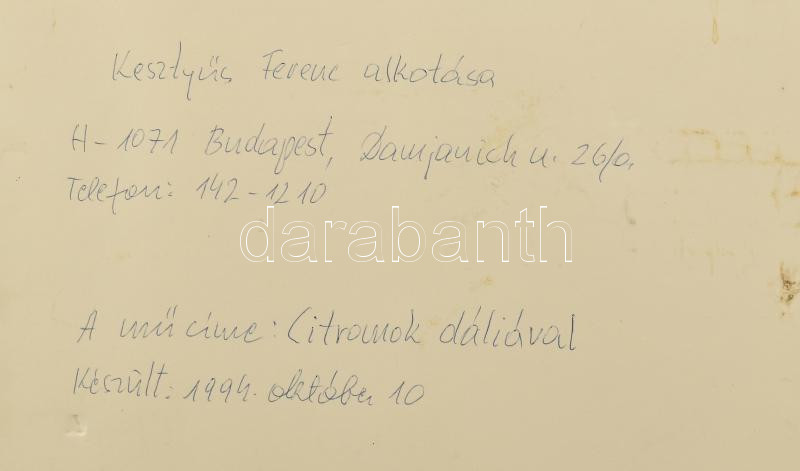 Kesztyűs Ferenc alkotása
H-1071 Budapest, Damjanich u. 26/a.
Telefon: 142-1210
darabanth
A mű címe: Citromok dáliával
Készült: 1994. október 10